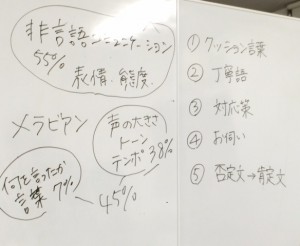 非言語コミュニケーション
55%
表情 態度
メラビアン
声の大きさ
トーン
テンポ 38%
何を言ったか
言葉 7%
45%
① クッション言葉
② 丁寧語
③ 対応策
④ お伺い
⑤ 否定文→肯定文